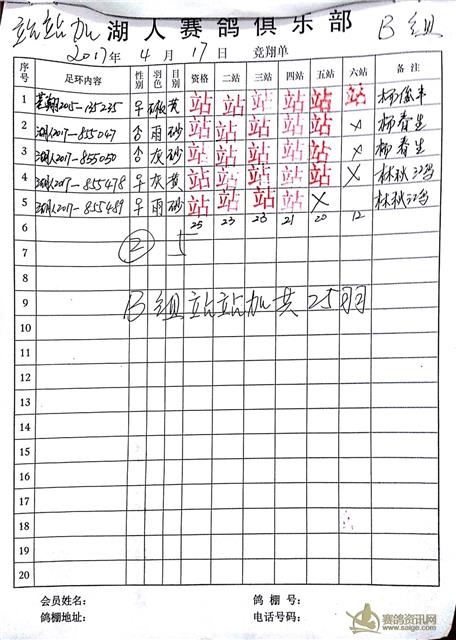 站站加 湖人赛鸽俱乐部 B组
2017年 4月 17日 竞翔单
序号 足环内容 性别 羽色 目别 资格 二站 三站 四站 五站 六站 备注
1 2015-135235 ♀ 黄 站 站 站 站 站 站
2 湖人2017-855047 ♂ 雨 砂 站 站 站 站 站 × 杨春生
3 湖人2017-855050 ♂ 灰 砂 站 站 站 站 站 × 杨春生
4 湖人2017-855478 ♀ 灰 黄 站 站 站 站 站 × 林秋
5 湖人2017-855489 ♀ 雨 砂 站 站 站 站 × 林秋
6 25 23 23 21 20 12
7 ②
8
9 B组站站加共25羽
10
11
12
13
14
15
16
17
18
19
20
会员姓名: 鸽棚号:
鸽棚地址: 电话号码:
赛鸽资讯网
www.saige.com